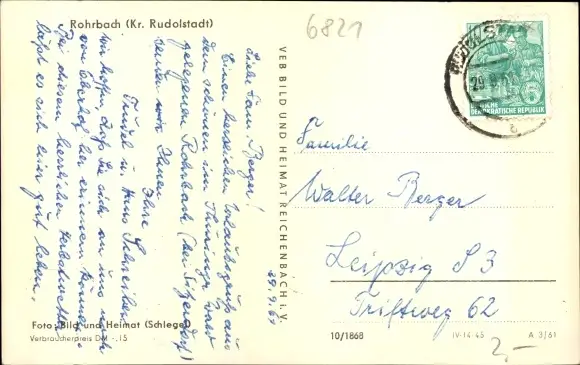 Rohrbach (Kr. Rudolstadt)
6821
29.9.61
Liebe Fam. Berger!
Einen herzlichen Urlaubsgruß aus
dem schönen im Thüringer Wald
gelegenen Rohrbach (bei Sitzendorf)
senden von Ihnen
Ihre
Trudel u. Hans Schreiber
Wir hoffen, daß Sie sich an uns noch
von Oberhof her erinnern können.
Bei diesem herrlichen Herbstwetter
läßt es sich hier gut leben.
VEB BILD UND HEIMAT REICHENBACH i. V.
RUDOLSTADT
29.9.61
DEUTSCHE
DEMOKRATISCHE REPUBLIK
Familie
Walter Berger
Leipzig S 3
Triftweg 62
Foto: Bild und Heimat (Schlegel)
Verbraucherpreis DM -.15
10/1868
IV-14-45
A 3/61
2,-